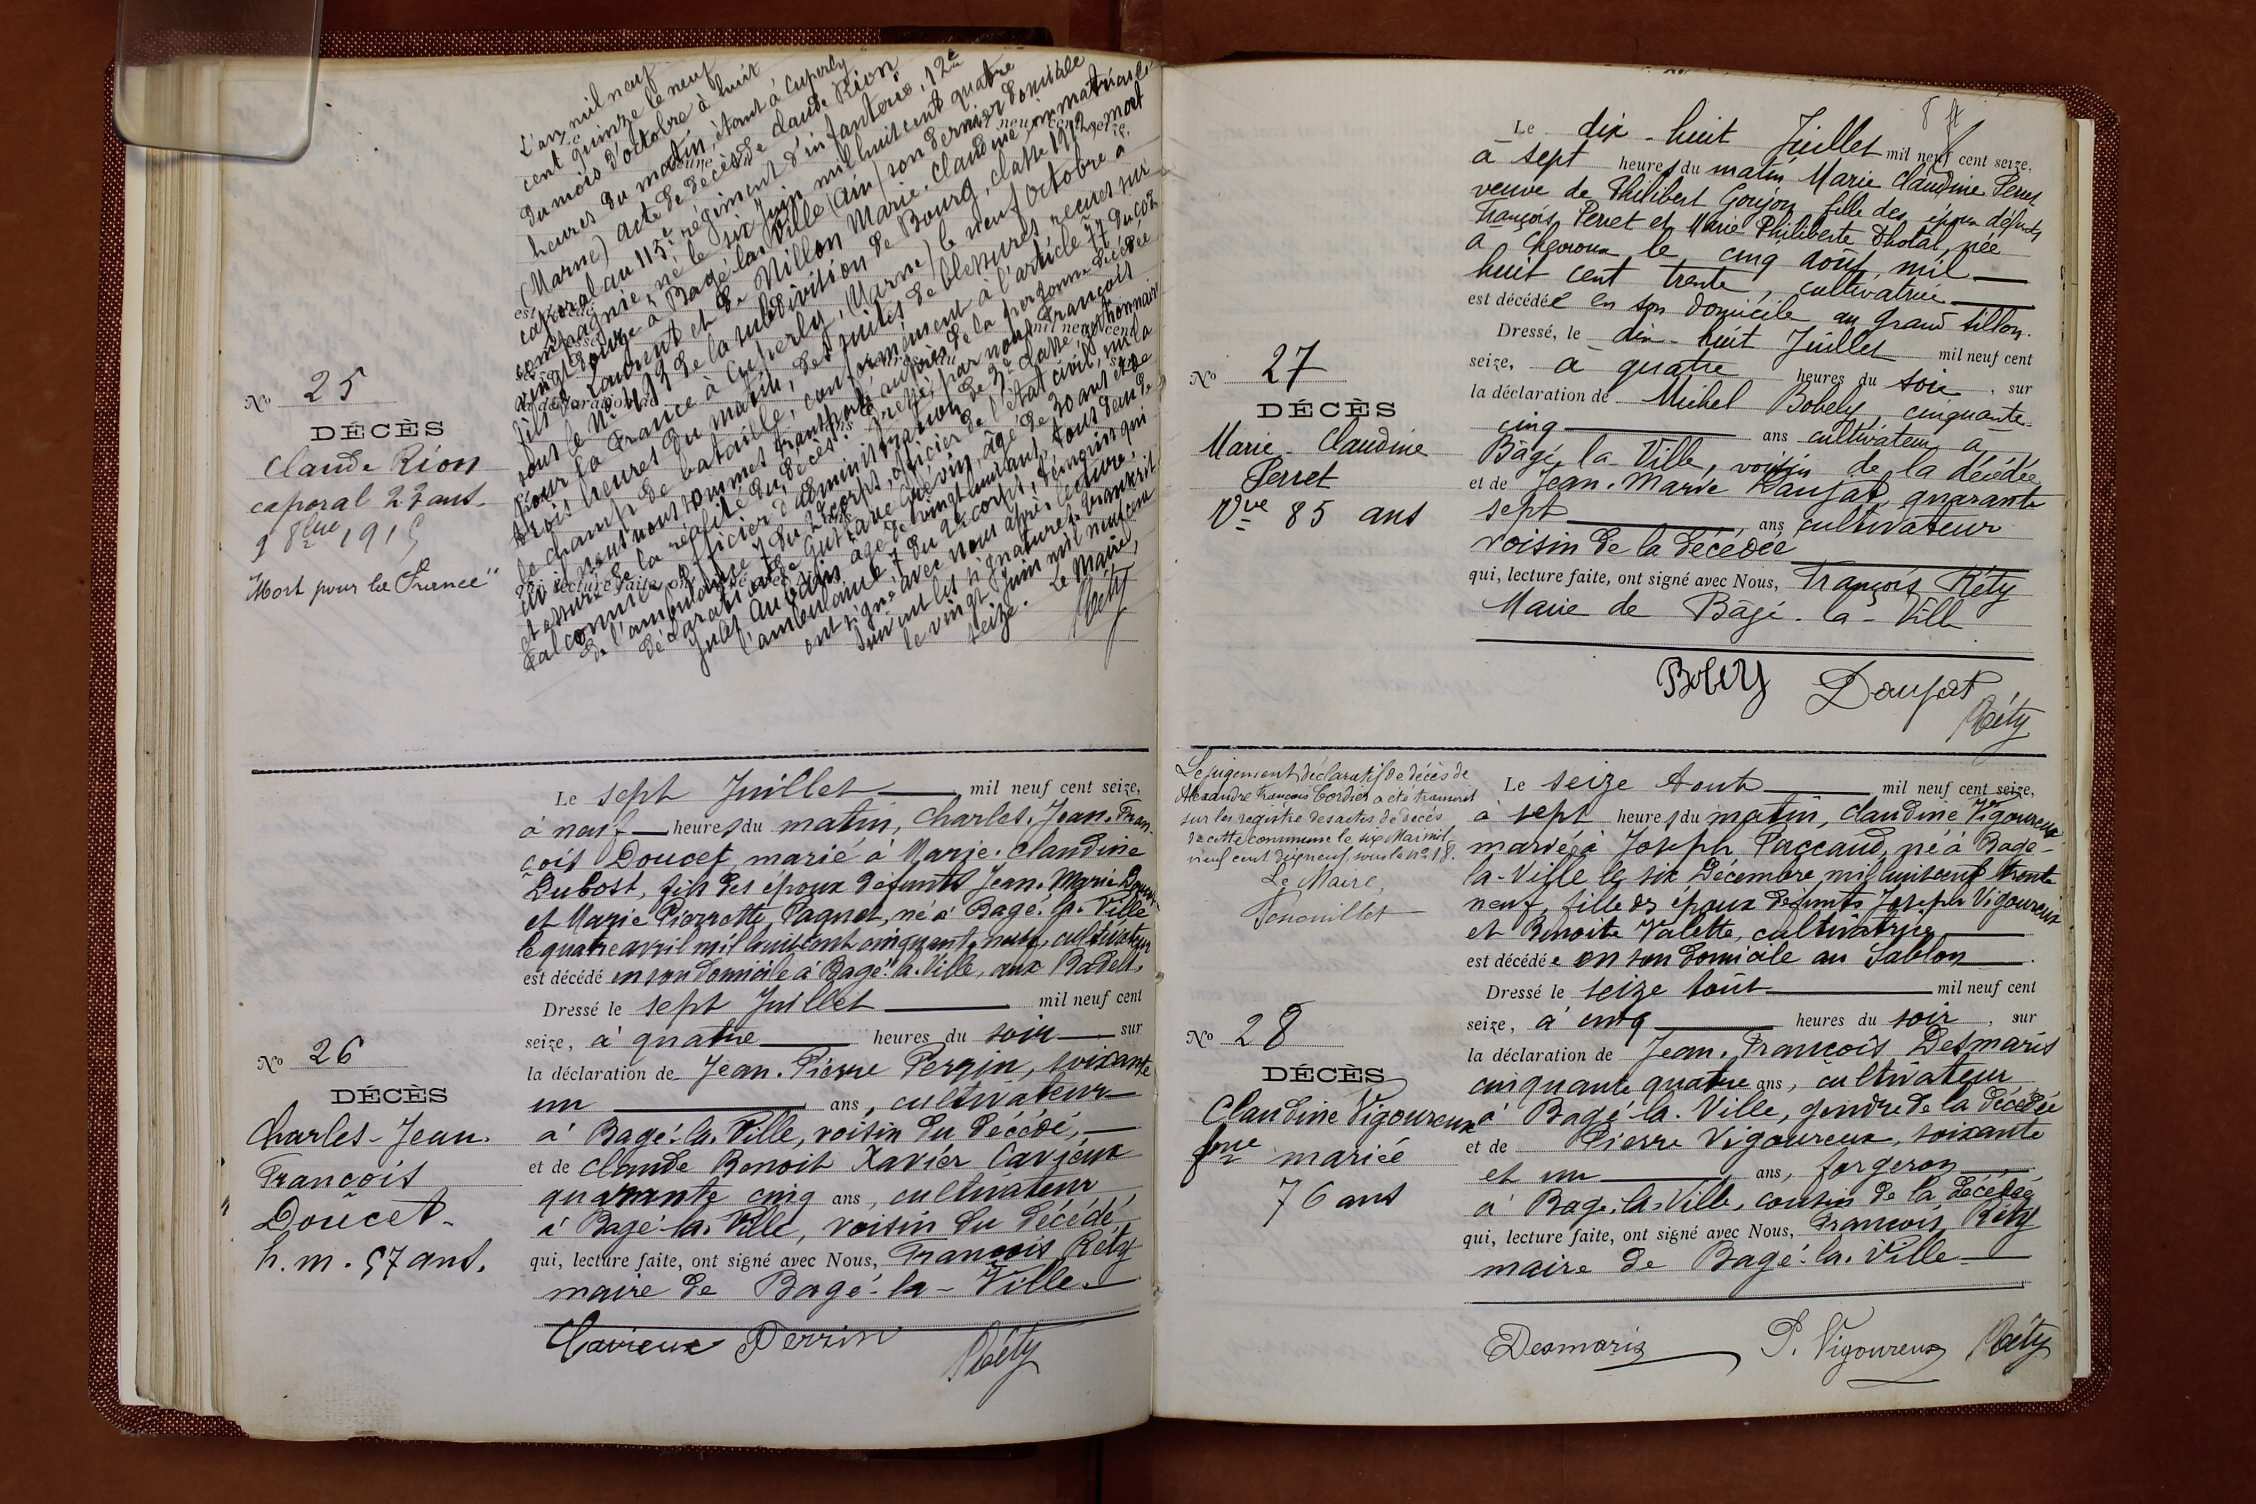 No 25
DÉCÈS
Claude Rion
caporal 23 ans.
9 8bre 1915
"Mort pour la France"
L'an mil neuf
cent quinze le neuf
du mois d'octobre à huit
heures du matin, étant à Cuperly
(Marne) acte de décès de Claude Rion
caporal au 115e régiment d'infanterie, 12e
compagnie, né le six Juin mil huit cent quatre
vingt douze à Bagé-la-Ville (Ain) son dernier domicile
fils de Laurent et de Millon Marie-Claudine, immatriculé
sous le No de la subdivision de Bourg, classe 1912, mort
pour la France à Cuperly, (Marne) le neuf Octobre à
trois heures du matin, des suites de blessures reçues sur
le champ de bataille, conformément à l'article 77 du code
civil nous nous sommes transporté auprès de la personne décédée
et assuré de la réalité du décès. Dressé par nous François
officier d'administration de 3e classe gestionnaire
de l'ambulance 7 du 2e corps, officier de l'état civil, sur la
déclaration de Gustave âgé de 30 ans et de
Jules âgé de vingt un ans, tous deux de
l'ambulance 7 du 2e corps, témoins qui
ont signé avec nous après lecture.
Suivent les signatures. Transcrit
le vingt Juin mil neuf cent
seize. Le Maire,
Réty
No 26
DÉCÈS
Charles-Jean-
François
Doucet-
h.m. 57 ans.
Le sept Juillet mil neuf cent seize,
à neuf heures du matin, Charles-Jean-Fran-
çois Doucet, marié à Marie-Claudine
Dubost, fils des époux défunts Jean-Marie Doucet
et Marie Pierrotte Paquet, né à Bagé-la-Ville
le quatre avril mil huit cent cinquante neuf, cultivateur
est décédé en son domicile à Bagé-la-Ville, aux Badels.
Dressé le sept Juillet mil neuf cent
seize, à quatre heures du soir sur
la déclaration de Jean-Pierre Perrin, soixante
un ans, cultivateur
à Bagé-la-Ville, voisin du décédé,
et de Claude Benoit Xavier Cavieux
quarante cinq ans, cultivateur
à Bagé-la-Ville, voisin du décédé
qui, lecture faite, ont signé avec Nous, François Réty
maire de Bagé-la-Ville
Cavieux Perrin Réty
8 ft
No 27
DÉCÈS
Marie-Claudine
Perret
Vve 85 ans
Le dix-huit Juillet mil neuf cent seize,
à sept heures du matin Marie Claudine Perret
veuve de Philibert Goujon fille des époux défunts
François Perret et Marie Philiberte Dhotal, née
à Chevroux le cinq août mil
huit cent trente, cultivatrice
est décédée en son domicile au grand Sillon.
Dressé, le dix-huit Juillet mil neuf cent
seize, à quatre heures du soir, sur
la déclaration de Michel Bobely, cinquante-
cinq ans cultivateur à
Bâgé la-Ville, voisin de la décédée
et de Jean-Marie Daujat, quarante
sept, ans cultivateur
voisin de la décédée
qui, lecture faite, ont signé avec Nous, François Réty
Maire de Bâgé-la-Ville
Daujat
Réty
Le jugement déclaratif de décès de
Alexandre François Cordier a été transcrit
sur les registre des actes de décès
de cette commune le six Mai mil
neuf cent dix neuf, sous le no 18.
Le Maire,
No 28
DÉCÈS
Claudine Vigoureux
fme mariée
76 ans
Le seize Aout mil neuf cent seize,
à sept heures du matin, Claudine Vigoureux
mariée à Joseph Paccaud, né à Bagé-
la-Ville le six Décembre mil huit cent trente
neuf, fille des époux défunts Joseph Vigoureux
et Benoite Valette, cultivatrice
est décédée en son domicile au Sablon.
Dressé le seize Août mil neuf cent
seize, à cinq heures du soir, sur
la déclaration de Jean-François Desmaris
cinquante quatre ans, cultivateur
à Bagé-la-Ville, gendre de la décédée
et de Pierre Vigoureux, soixante
et un ans, forgeron
à Bagé-la-Ville, cousin de la décédée
qui, lecture faite, ont signé avec Nous, François Réty
maire de Bagé-la-Ville
Desmaris P. Vigoureux Réty